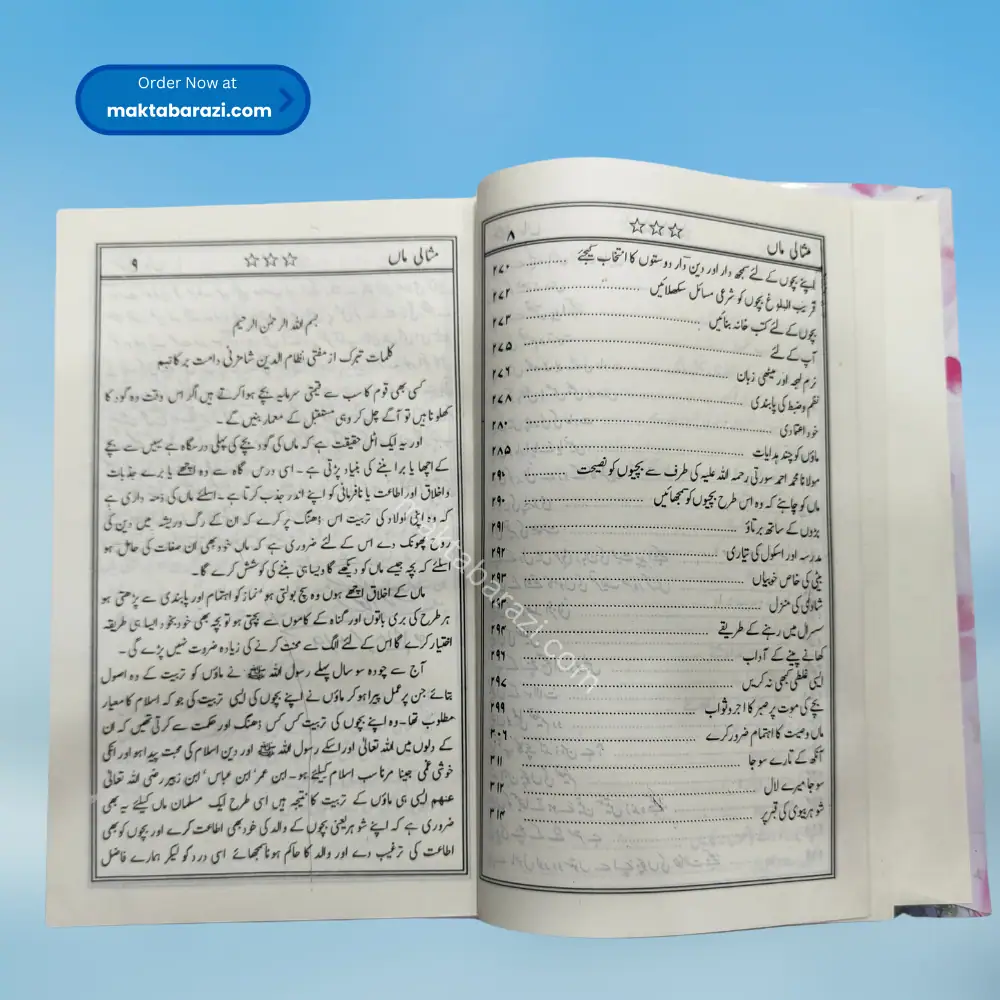 Order Now at
maktabarazi.com
مثالی ماں ☆☆☆ ۸
اپنے بچوں کے لئے سمجھ دار اور دین دار دوستوں کا انتخاب کیجئے ............ ۲۷۰
قریب البلوغ بچوں کو شرعی مسائل سکھلائیں ............ ۲۷۲
بچوں کے لئے کتب خانہ بنائیں ............ ۲۷۳
آپ کے لئے ............ ۲۷۵
نرم لہجہ اور میٹھی زبان ............ ۲۷۶
نظم وضبط کی پابندی ............ ۲۷۸
خود اعتمادی ............ ۲۸۰
ماؤں کو چند ہدایات ............ ۲۸۵
مولانا محمد احمد سورتی رحمہ اللہ علیہ کی طرف سے بچیوں کو نصیحت ۲۹۰
ماں کو چاہئے کہ وہ اس طرح بچیوں کو سمجھائیں ............ ۲۹۰
بڑوں کے ساتھ برتاؤ ............ ۲۹۱
مدرسہ اور اسکول کی تیاری ............ ۲۹۲
بیٹی کی خاص خوبیاں ............ ۲۹۳
شادی کی منزل ............ ۲۹۳
سسرال میں رہنے کے طریقے ............ ۲۹۴
کھانے پینے کے آداب ............ ۲۹۶
ایسی غلطی کبھی نہ کریں ............ ۲۹۷
بچے کی موت پر صبر کا اجر و ثواب ............ ۲۹۹
ماں وصیت کا اہتمام ضرور کرے ............ ۳۰۶
آنکھ کے تارے سو جا ............ ۳۱۱
سو جا میرے لال ............ ۳۱۲
شوہر بیوی کی قبر پر ............ ۳۱۴
مثالی ماں ☆☆☆ ۹
بسم اللہ الرحمٰن الرحیم
کلمات تبرک از مفتی نظام الدین شامزئی دامت برکاتہم
کسی بھی قوم کا سب سے قیمتی سرمایہ بچے ہوا کرتے ہیں اگر اس وقت وہ گود کا
کھلونا ہیں تو آگے چل کر وہی مستقبل کے معمار بنیں گے ۔
اور یہ ایک اٹل حقیقت ہے کہ ماں کی گود بچے کی پہلی درسگاہ ہے یہیں سے بچے
کے اچھا یا برا بننے کی بنیاد پڑتی ہے ۔ اسی درس گاہ سے وہ اچھے یا برے جذبات
و اخلاق اور اطاعت یا نافرمانی کو اپنے اندر جذب کرتا ہے ۔ اسلئے ماں کی ذمہ داری ہے
کہ وہ اپنی اولاد کی تربیت اس ڈھنگ پر کرے کہ ان کے رگ وریشہ میں دین کی
روح پھونک دے اس کے لئے ضروری ہے کہ ماں خود بھی ان صفات کی حامل ہو
اسلئے کہ بچہ جیسے ماں کو دیکھے گا ویسا ہی بننے کی کوشش کرے گا ۔
ماں کے اخلاق اچھے ہوں وہ سچ بولتی ہو نماز کو اہتمام اور پابندی سے پڑھتی ہو
ہر طرح کی بری باتوں اور گناہ کے کاموں سے بچتی ہو تو بچہ بھی خود بخود ایسا ہی طریقہ
اختیار کرے گا اس کے لئے الگ سے محنت کرنے کی زیادہ ضرورت نہیں پڑے گی ۔
آج سے چودہ سو سال پہلے رسول اللہ ﷺ نے ماؤں کو تربیت کے وہ اصول
بتائے جن پر عمل پیرا ہو کر ماؤں نے اپنے بچوں کی ایسی تربیت کی جو کہ اسلام کا معیار
مطلوب تھا ۔ وہ اپنے بچوں کی تربیت کس کس ڈھنگ اور حکمت سے کرتی تھیں کہ ان
کے دلوں میں اللہ تعالیٰ اور اسکے رسول اللہ ﷺ اور دین اسلام کی محبت پیدا ہو اور انکی
خوشی غمی جینا مرنا سب اسلام کیلئے ہو ۔ ابن عمر' ابن عباس' ابن زبیر رضی اللہ تعالیٰ
عنہم ایسی ہی ماؤں کے تربیت کا نتیجہ ہیں اسی طرح ایک مسلمان ماں کیلئے یہ بھی
ضروری ہے کہ اپنے شوہر یعنی بچوں کے والد کی خود بھی اطاعت کرے اور بچوں کو بھی
اطاعت کی ترغیب دے اور والد کا حاکم ہونا سمجھائے اسی درد کو لیکر ہمارے فاضل
maktabarazi.com